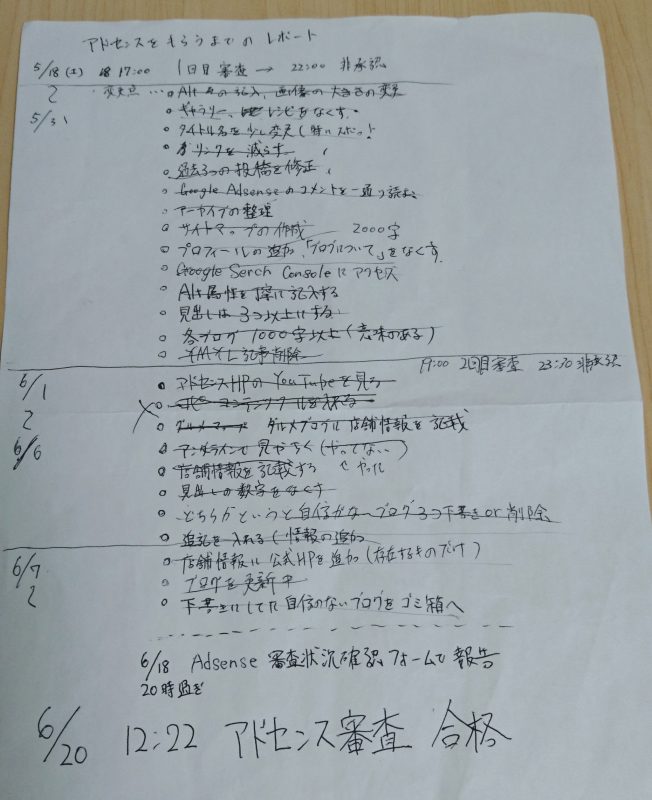 アドセンスをもらうまでの レポート
5/18(土) 17:00 1回目審査 → 22:00 非承認
〜 変更点 … ・Alt の記入、画像の大きさの変更
5/31 ・ギャラリー、レシピをなくす。
・タイトル名を少し変更(特にスポッ!
・リンクを減らす
・過去3つの投稿を修正
・Google Adsenseのコメントを一通り読む
・アーカイブの整理
・サイトマップの作成 2000字
・プロフィールの追加、「ブログについて」をなくす。
・Google Serch Consoleにアクセス
・Alt属性を 記入する
・見出しは3つ以上にする
・各ブログ 1000字以上(意味のある)
・YMYL記事削除
19:00 2回目審査 23:30 非承認
6/1 ・アドセンスHPの YouTubeを見る
〜 × ・コピーコンテンツ ツールを入れる
・グルメマップ グルメブログに 店舗情報を記載
6/6 ・アンダラインで見やすく(やってない)
・店舗情報を記載する ←やった
・見出しの数字をなくす
・どちらかというと自信がないブログ3つ下書きor削除
・追記を入れる(情報の追加
6/7 ・店舗情報に公式HPを追加(存在するものだけ)
〜 ・ブログを更新中
・下書きにしてた自信のないブログをゴミ箱へ
6/18 Adsense 審査状況確認フォームで報告
20時過ぎ
6/20 12:22 アドセンス審査 合格